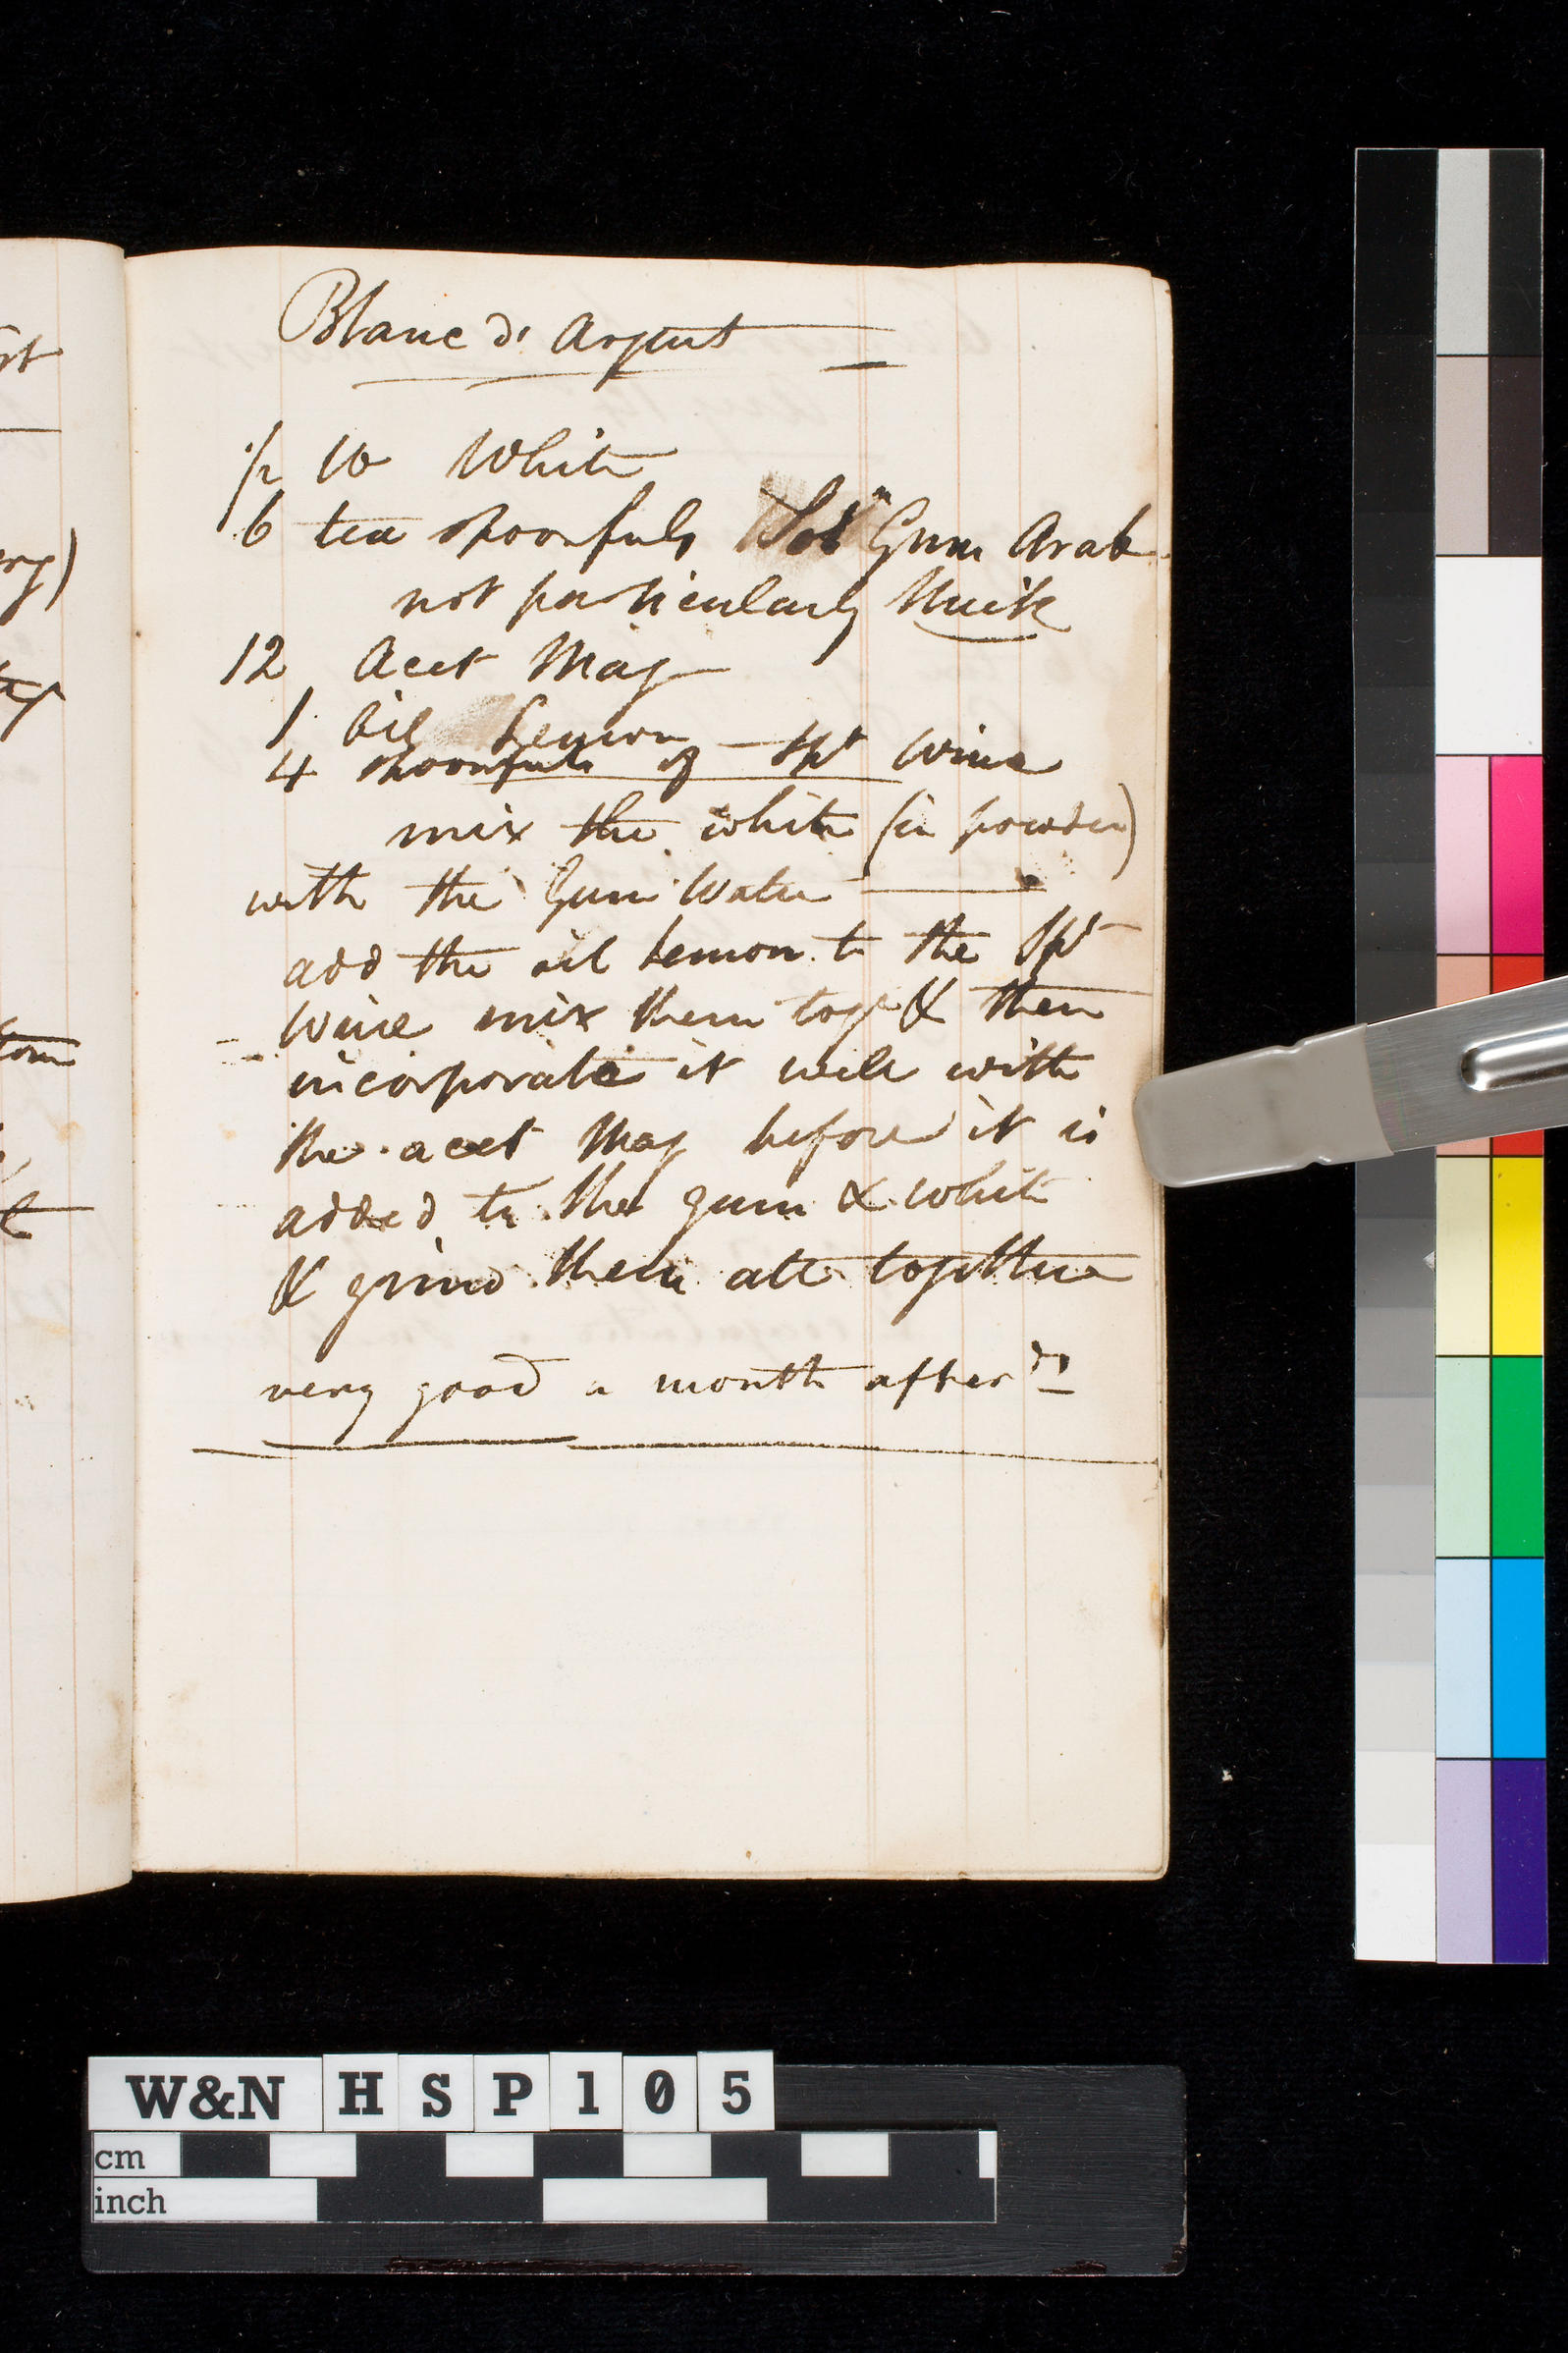 rt
rg)
Blanc d'Argent
1/2 lb White
6 tea spoonfuls Soln Gum Arab
not particularly thick
12 Acet Mag
1 Oil Lemon
4 spoonfuls of Spt Wine
mix the white (in powder)
with the Gum Water
add the oil Lemon to the Spt
Wine mix them togr & then
incorporate it well with
the acet Mag before it is
added to the gum & white
& grind them all together
very good a month afterds
W&N HSP105
cm
inch